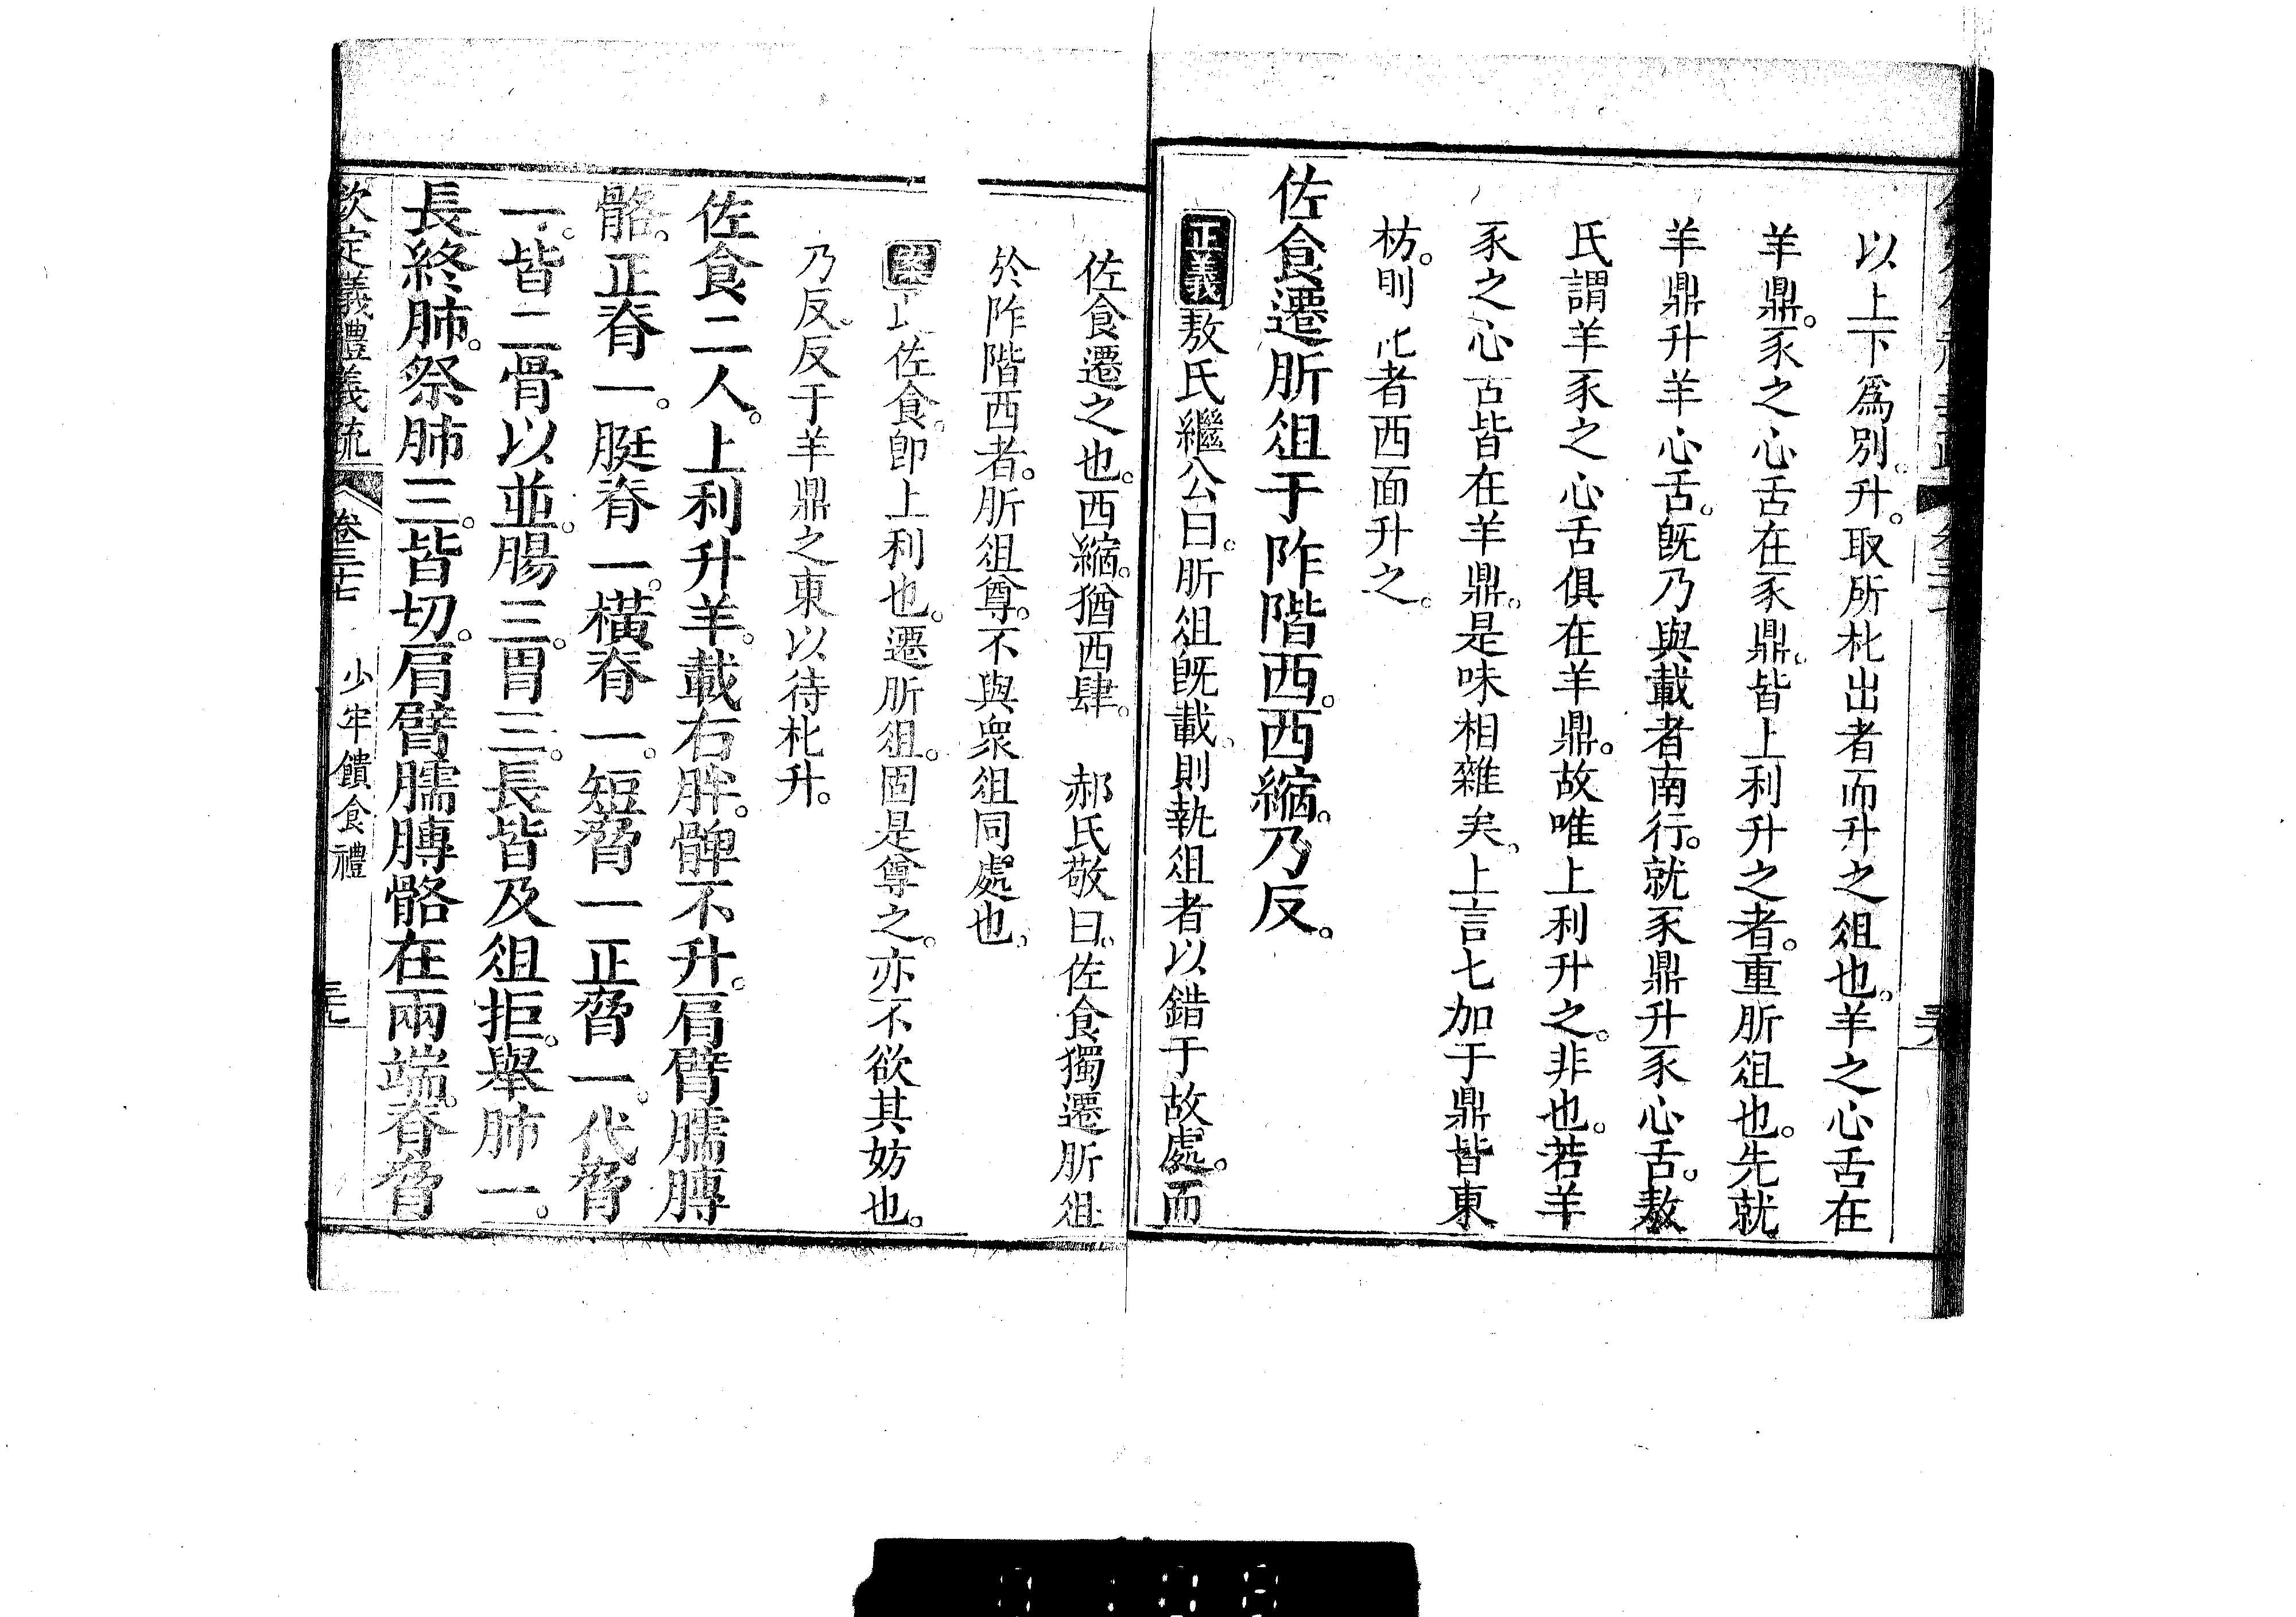 以上下爲別。升。取所朼出者而升之俎也。羊之心舌在
羊鼎。豕之心舌在豕鼎。皆上利升之者。重肵俎也。先就
羊鼎升羊心舌。旣乃與載者南行。就豕鼎升豕心舌。敖
氏謂羊豕之心舌俱在羊鼎。故唯上利升之。非也。若羊
豕之心舌皆在羊鼎。是味相雜矣。上言七加于鼎皆東
枋。則 者西面升之。
佐食遷肵俎于阼階西。西縮。乃反。
正義 敖氏繼公曰。肵俎旣載。則執俎者以錯于故處。而
佐食遷之也。西縮。猶西肆。 郝氏敬曰。佐食獨遷肵俎
於阼階西者。肵俎尊。不與衆俎同處也。
案 佐食。卽上利也。遷肵俎。固是尊之。亦不欲其妨也。
乃反。反于羊鼎之東以待朼升。
佐食二人。上利升羊。載右胖。髀不升。肩臂臑膊
骼。正脊一。脡脊一。橫脊一。短脅一正脅一。代脅
一。皆二骨以並。腸三。胃三。長皆及俎拒。舉肺一。
長終肺。祭肺三。皆切。肩臂臑膊骼在兩端。脊脅
欽定義禮義疏 卷三十七 少牢饋食禮